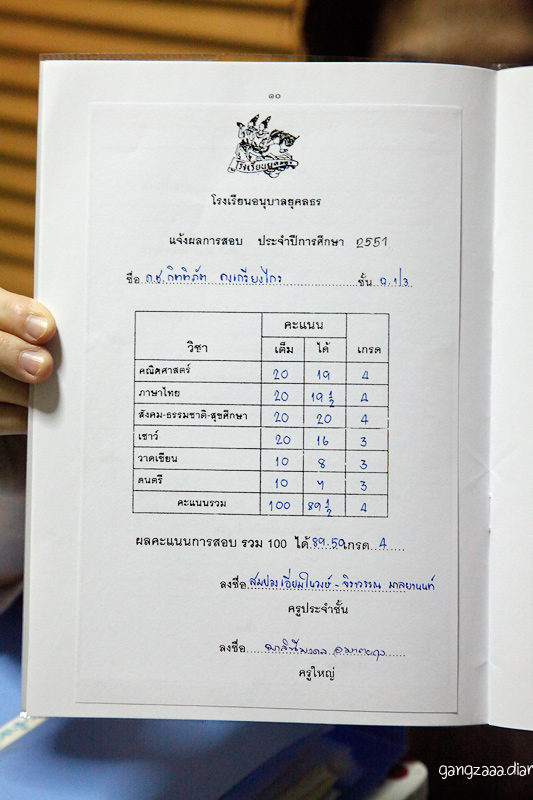 ๑๐
โรงเรียนยุคลธร
โรงเรียนอนุบาลยุคลธร
แจ้งผลการสอบ ประจำปีการศึกษา 2551
ชื่อ ด.ช. กิตติภัท คงเกรียงไกร ชั้น อ.1/3
วิชา คะแนน เกรด
เต็ม ได้
คณิตศาสตร์ 20 19 4
ภาษาไทย 20 19 1/2 4
สังคม-ธรรมชาติ-สุขศึกษา 20 20 4
เชาว์ 20 16 3
วาดเขียน 10 8 3
ดนตรี 10 7 3
คะแนนรวม 100 89 1/2 4
ผลคะแนนการสอบ รวม 100 ได้ 89.50 เกรด 4
ลงชื่อ สมปอง เอี่ยมในวงษ์ - จิราวรรณ มาลยานนท์
ครูประจำชั้น
ลงชื่อ
ครูใหญ่
gangzaaa.diar